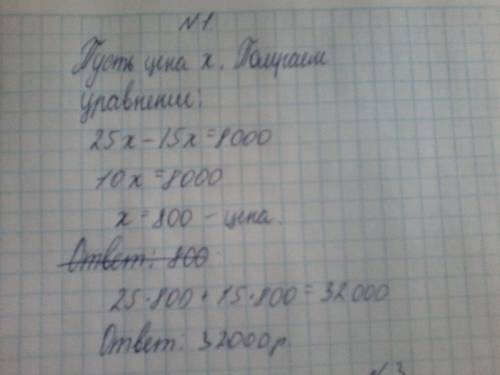 №1
Пусть цена х. Получаем
уравнение:
25х - 15х = 8000
10х = 8000
х = 800 - цена.
Ответ: 800
25·800 + 15·800 = 32000
Ответ: 32000р.
№3